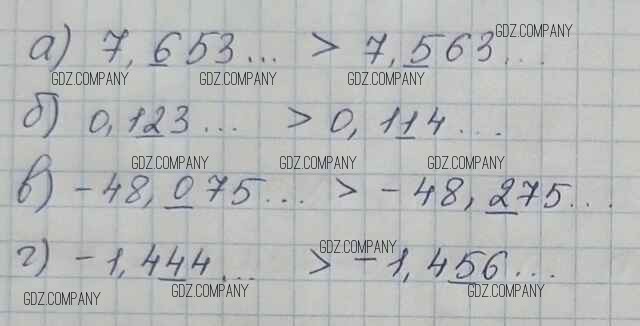 а) 7,653... > 7,563...
б) 0,123... > 0,114...
в) -48,075... > -48,275...
г) -1,444... > -1,456...
GDZ.COMPANY
GDZ.COMPANY
GDZ.COMPANY
GDZ.COMPANY
GDZ.COMPANY
GDZ.COMPANY
GDZ.COMPANY
GDZ.COMPANY
GDZ.COMPANY
GDZ.COMPANY
GDZ.COMPANY